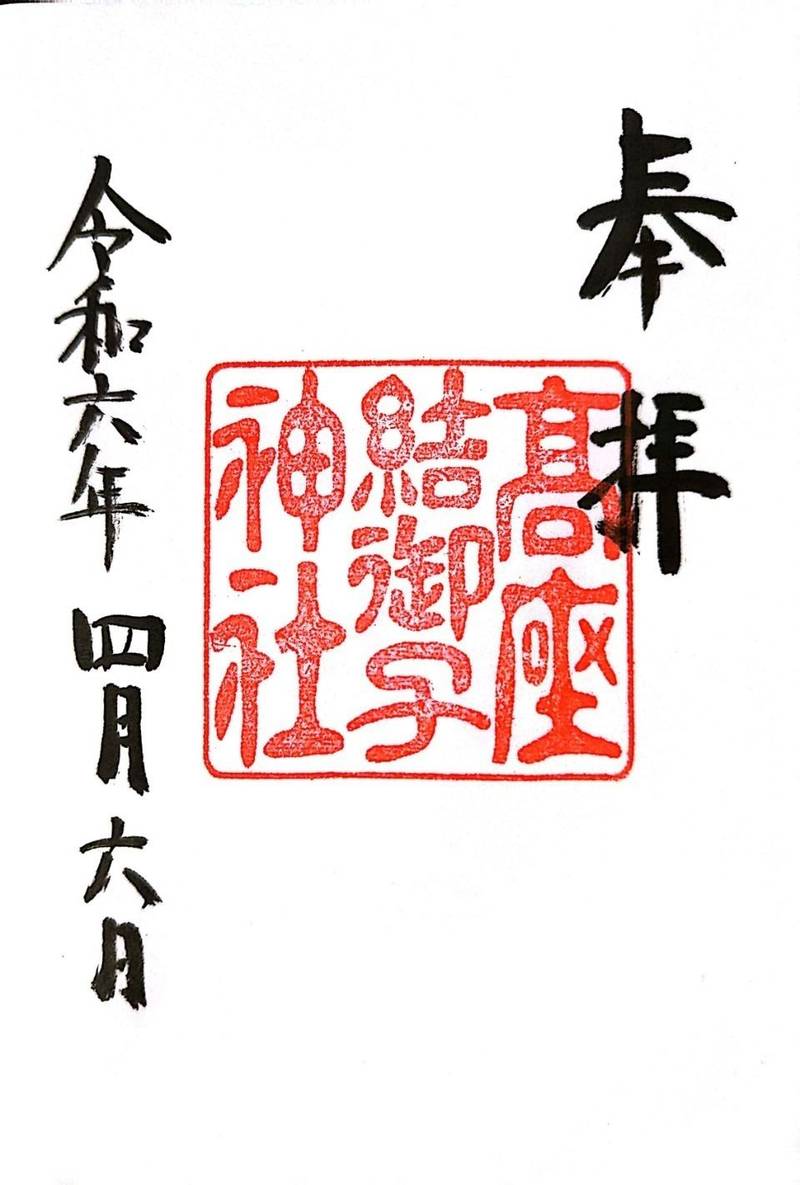 奉拝
髙座
結御子
神社
令和六年四月六日